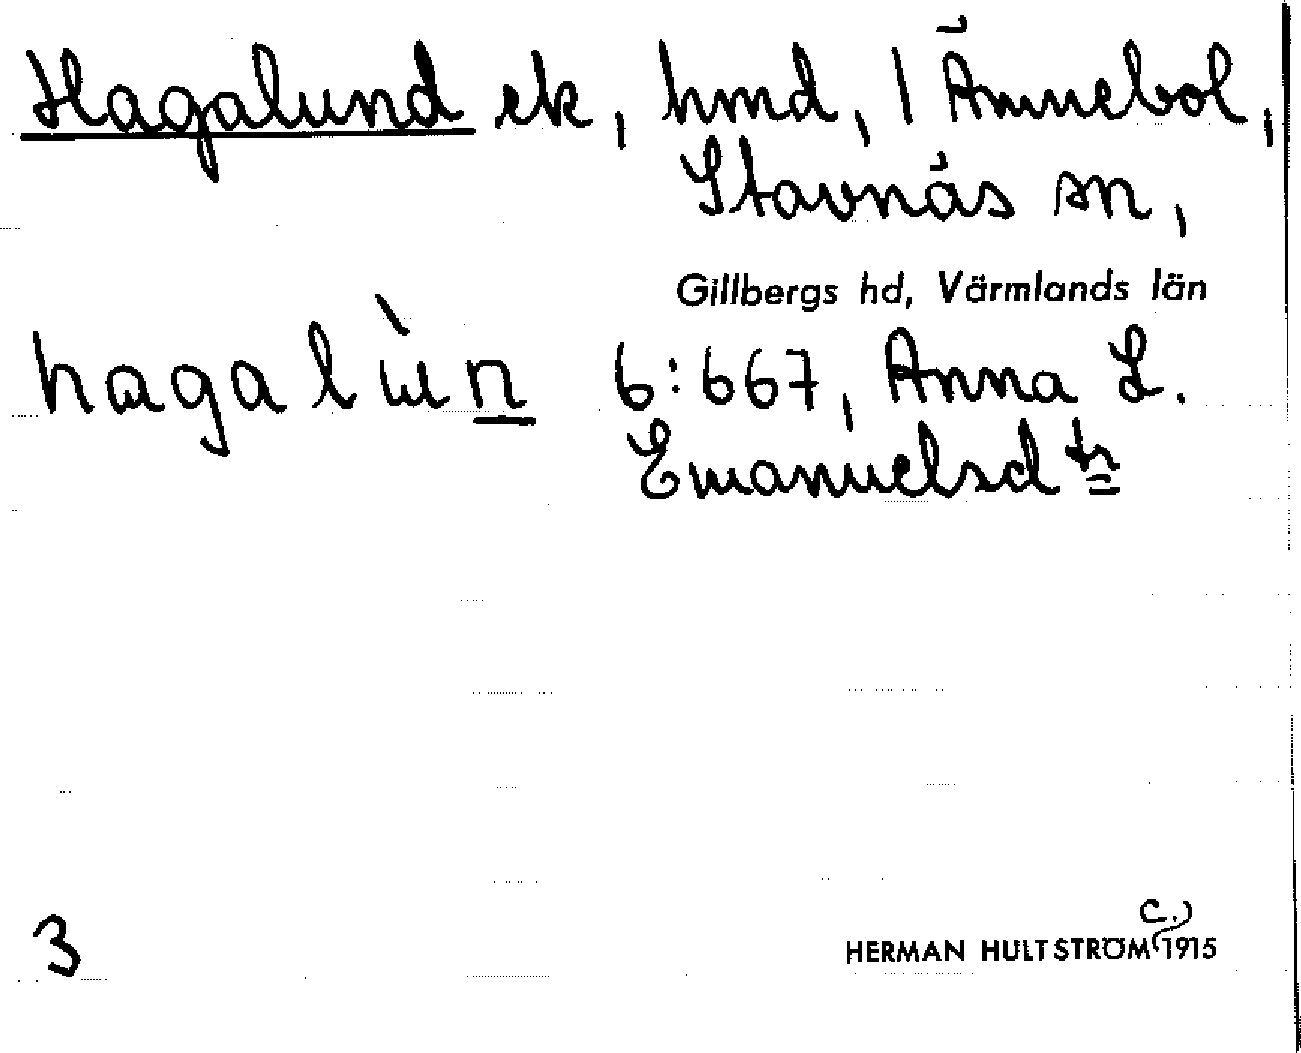 Hagalund ek, hmd, 1 Ämnebol,
Stavnäs sn,
Gillbergs hd, Värmlands län
hagalùn 6:667, Anna L.
Emanuelsdtr
3
c.)
HERMAN HULTSTRÖM 1915